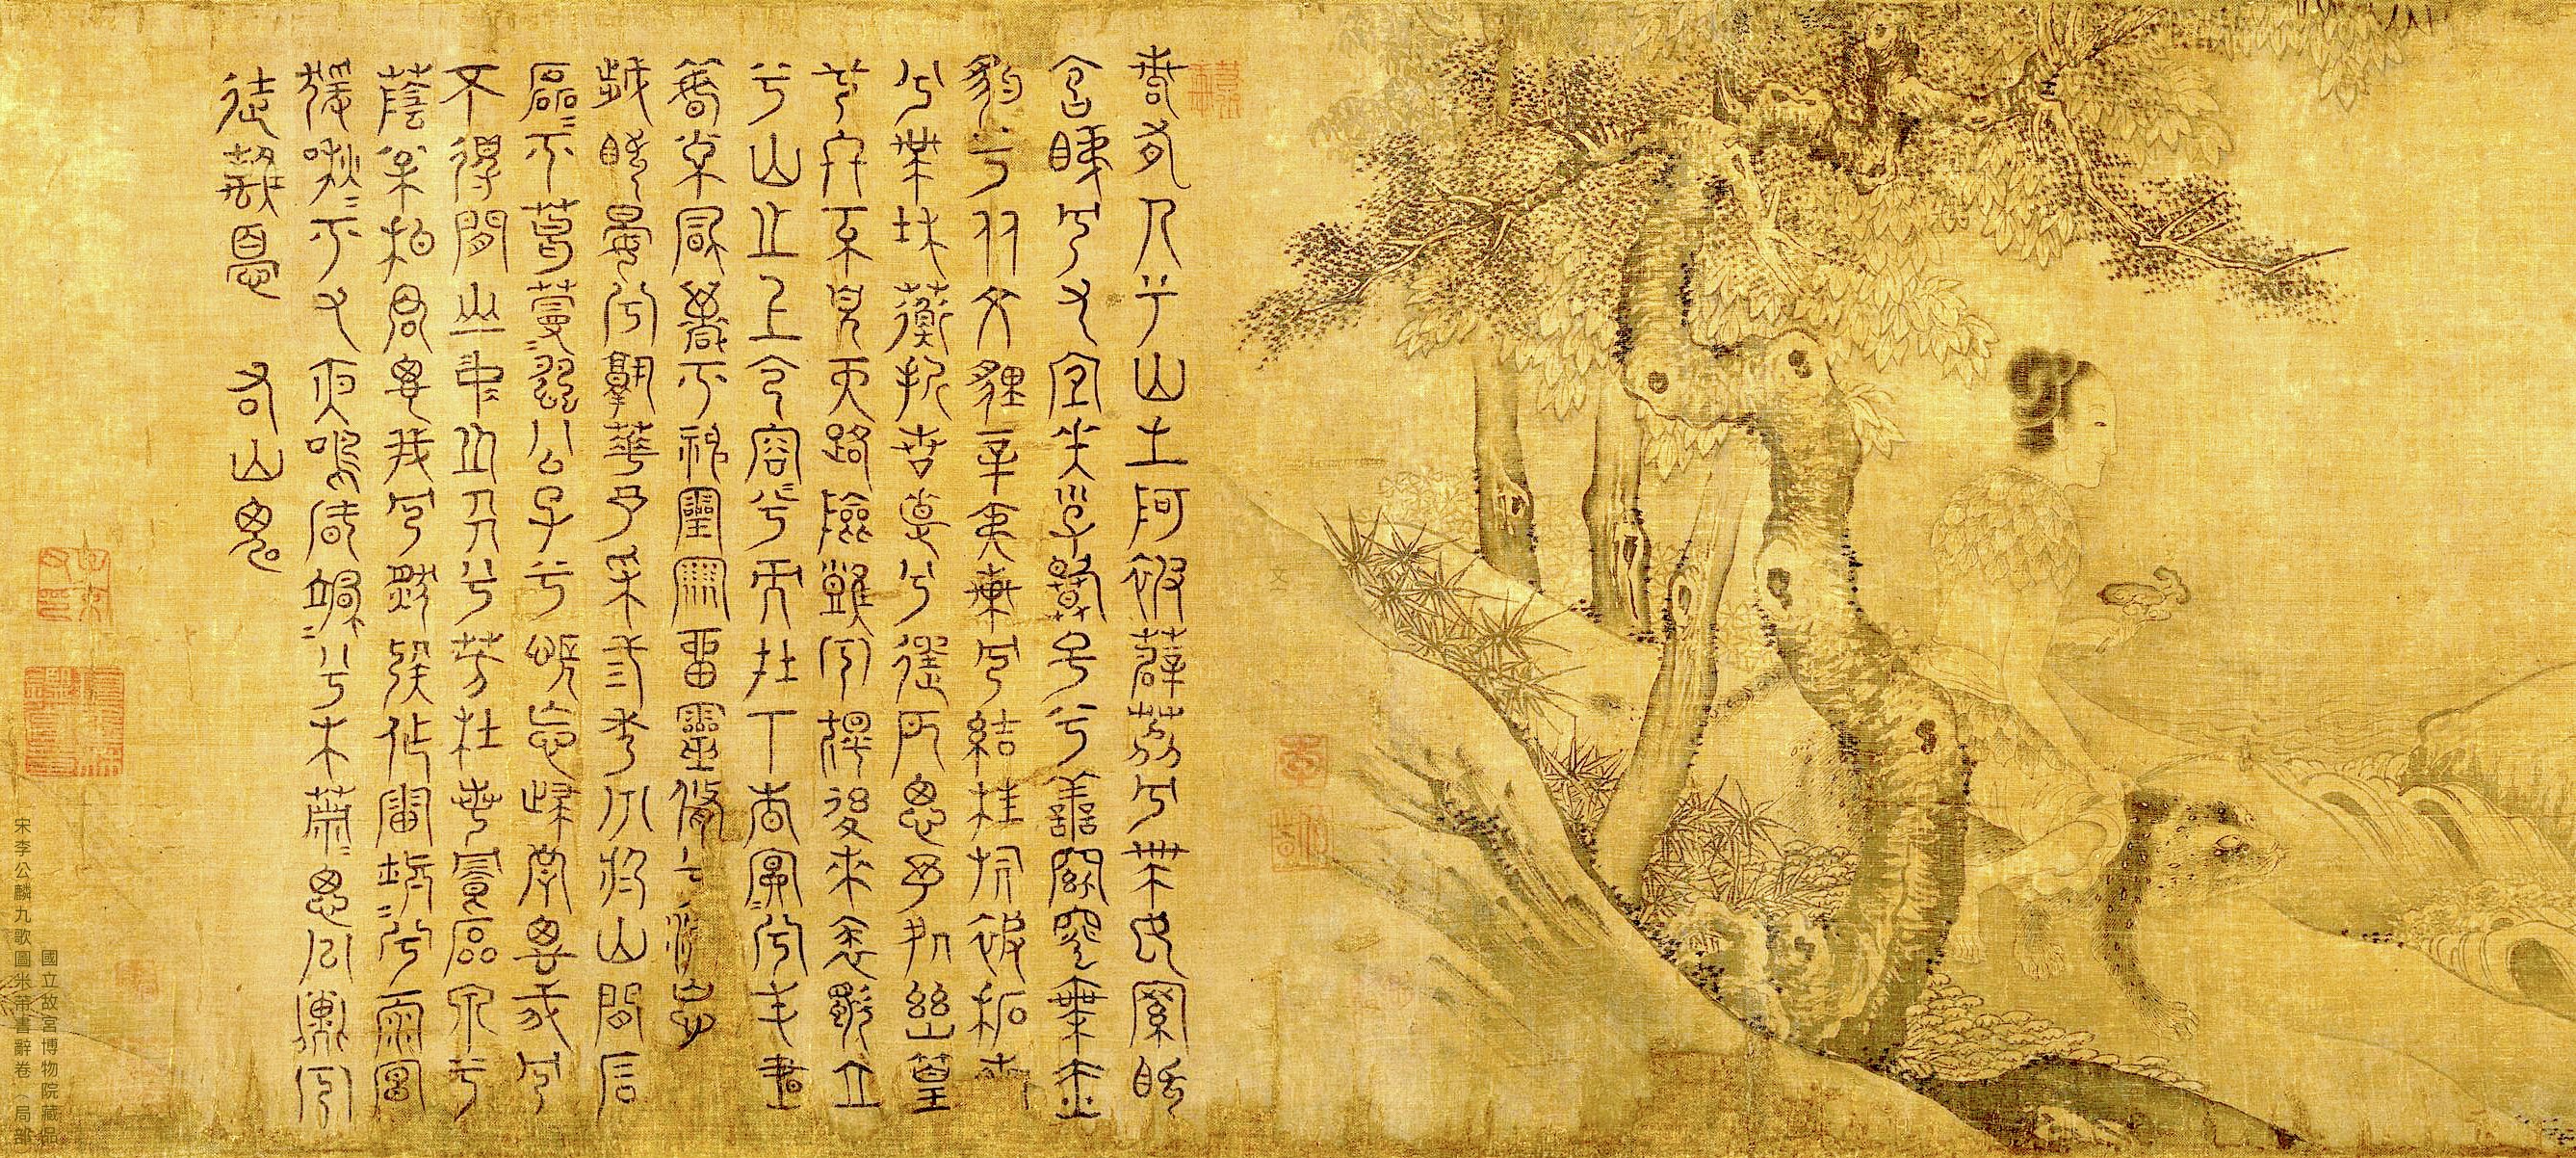 若有人兮山之阿被薜荔兮帶女蘿既
含睇兮又宜笑子慕予兮善窈窕乘赤
豹兮從文貍辛夷車兮結桂旗被石蘭
兮帶杜衡折芳馨兮遺所思余處幽篁
兮終不見天路險難兮獨後來表獨立
兮山之上雲容容兮而在下杳冥冥兮羌晝
晦東風飄兮神靈雨留靈脩兮憺忘
歲既晏兮孰華予采三秀兮於山間石
磊磊兮葛蔓蔓怨公子兮悵忘歸君思我兮
不得閒山中人兮芳杜若飲石泉兮
蔭松柏君思我兮然疑作雷填填兮雨冥
猨啾啾兮又夜鳴風颯颯兮木蕭蕭思公子兮
徒離憂　右山鬼
國立故宮博物院藏品
宋李公麟九歌圖米芾書辭卷（局部）